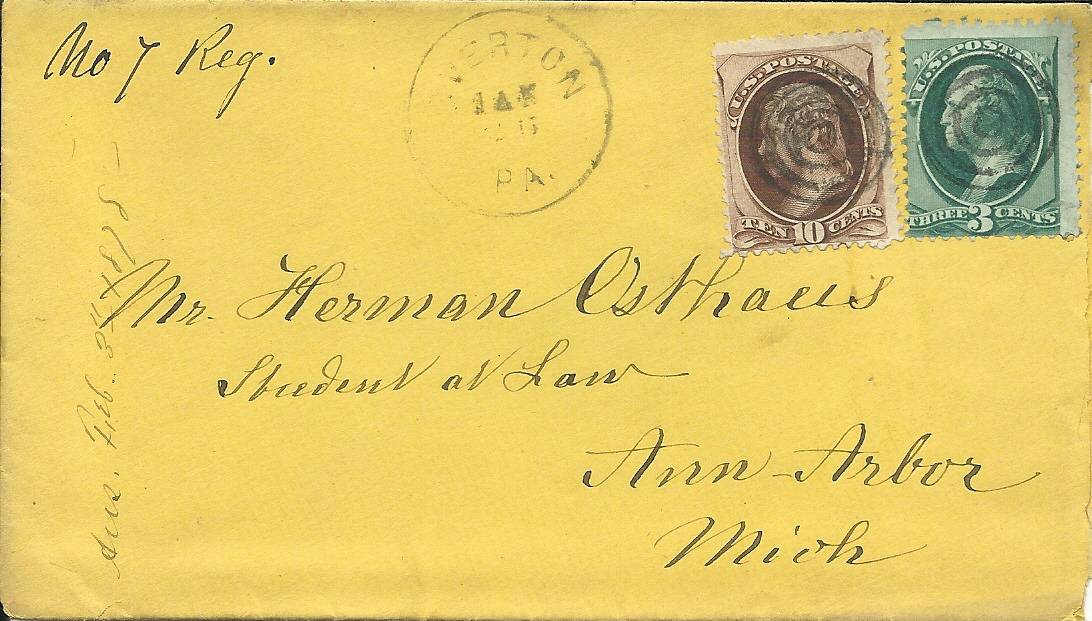 No 7 Reg.
OVERTON
JAN
PA.
U.S. POSTAGE
TEN 10 CENTS
U.S. POSTAGE
THREE 3 CENTS
Mr. Herman Osthaus
Student at Law
Ann-Arbor
Mich
Ans. Feb. 2nd 1878